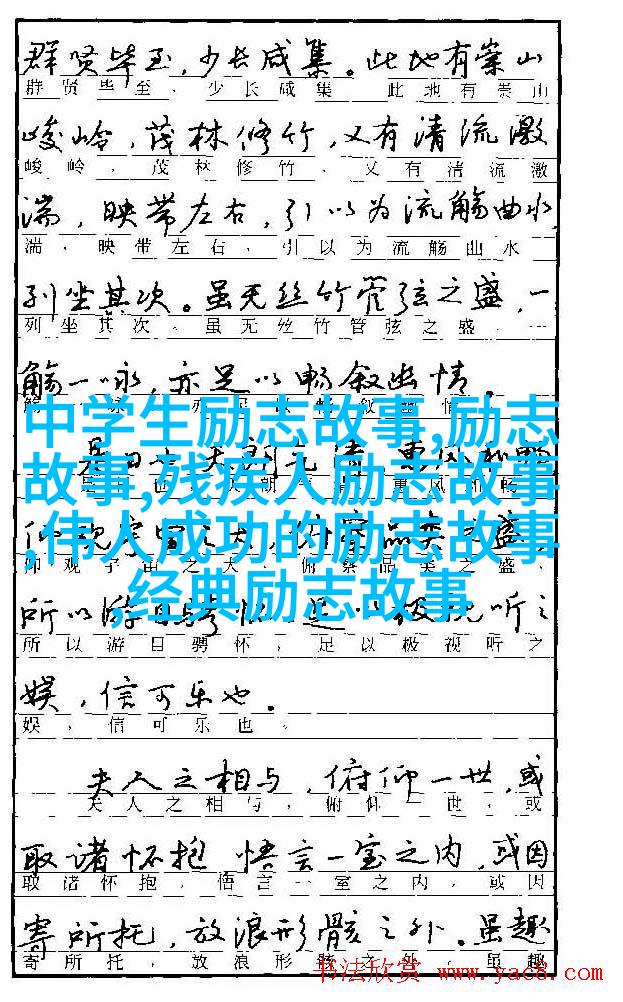 群贤毕至,少长咸集。此地有崇山
群贤毕至,少长咸集。此地有崇山
峻岭,茂林修竹,又有清流激
峻岭,茂林修竹,又有清流激
湍,映带左右,引以为流觞曲水,
湍,映带左右,引以为流觞曲水
列坐其次。虽无丝竹管弦之盛,一
列坐其次。虽无丝竹管弦之盛,一
觞一咏,亦足以畅叙幽情。
中学生励志故事,励志
故事,残疾人励志故事
,伟人成功的励志故事
,经典励志故事
仰观宇宙之大,俯察品类之盛,
所以游目骋怀,足以极视听之
所以游目骋怀,足以极视听之
娱,信可乐也。
娱,信可乐也。
夫人之相与,俯仰一世,或
夫人之相与,俯仰一世,或
取诸怀抱 悟言一室之内,或因
取诸怀抱,悟言一室之内,或因
寄所托,放浪形骸之外。虽趣
寄所托,放浪形骸之外。虽趣
书法欣赏 www.yac8.com